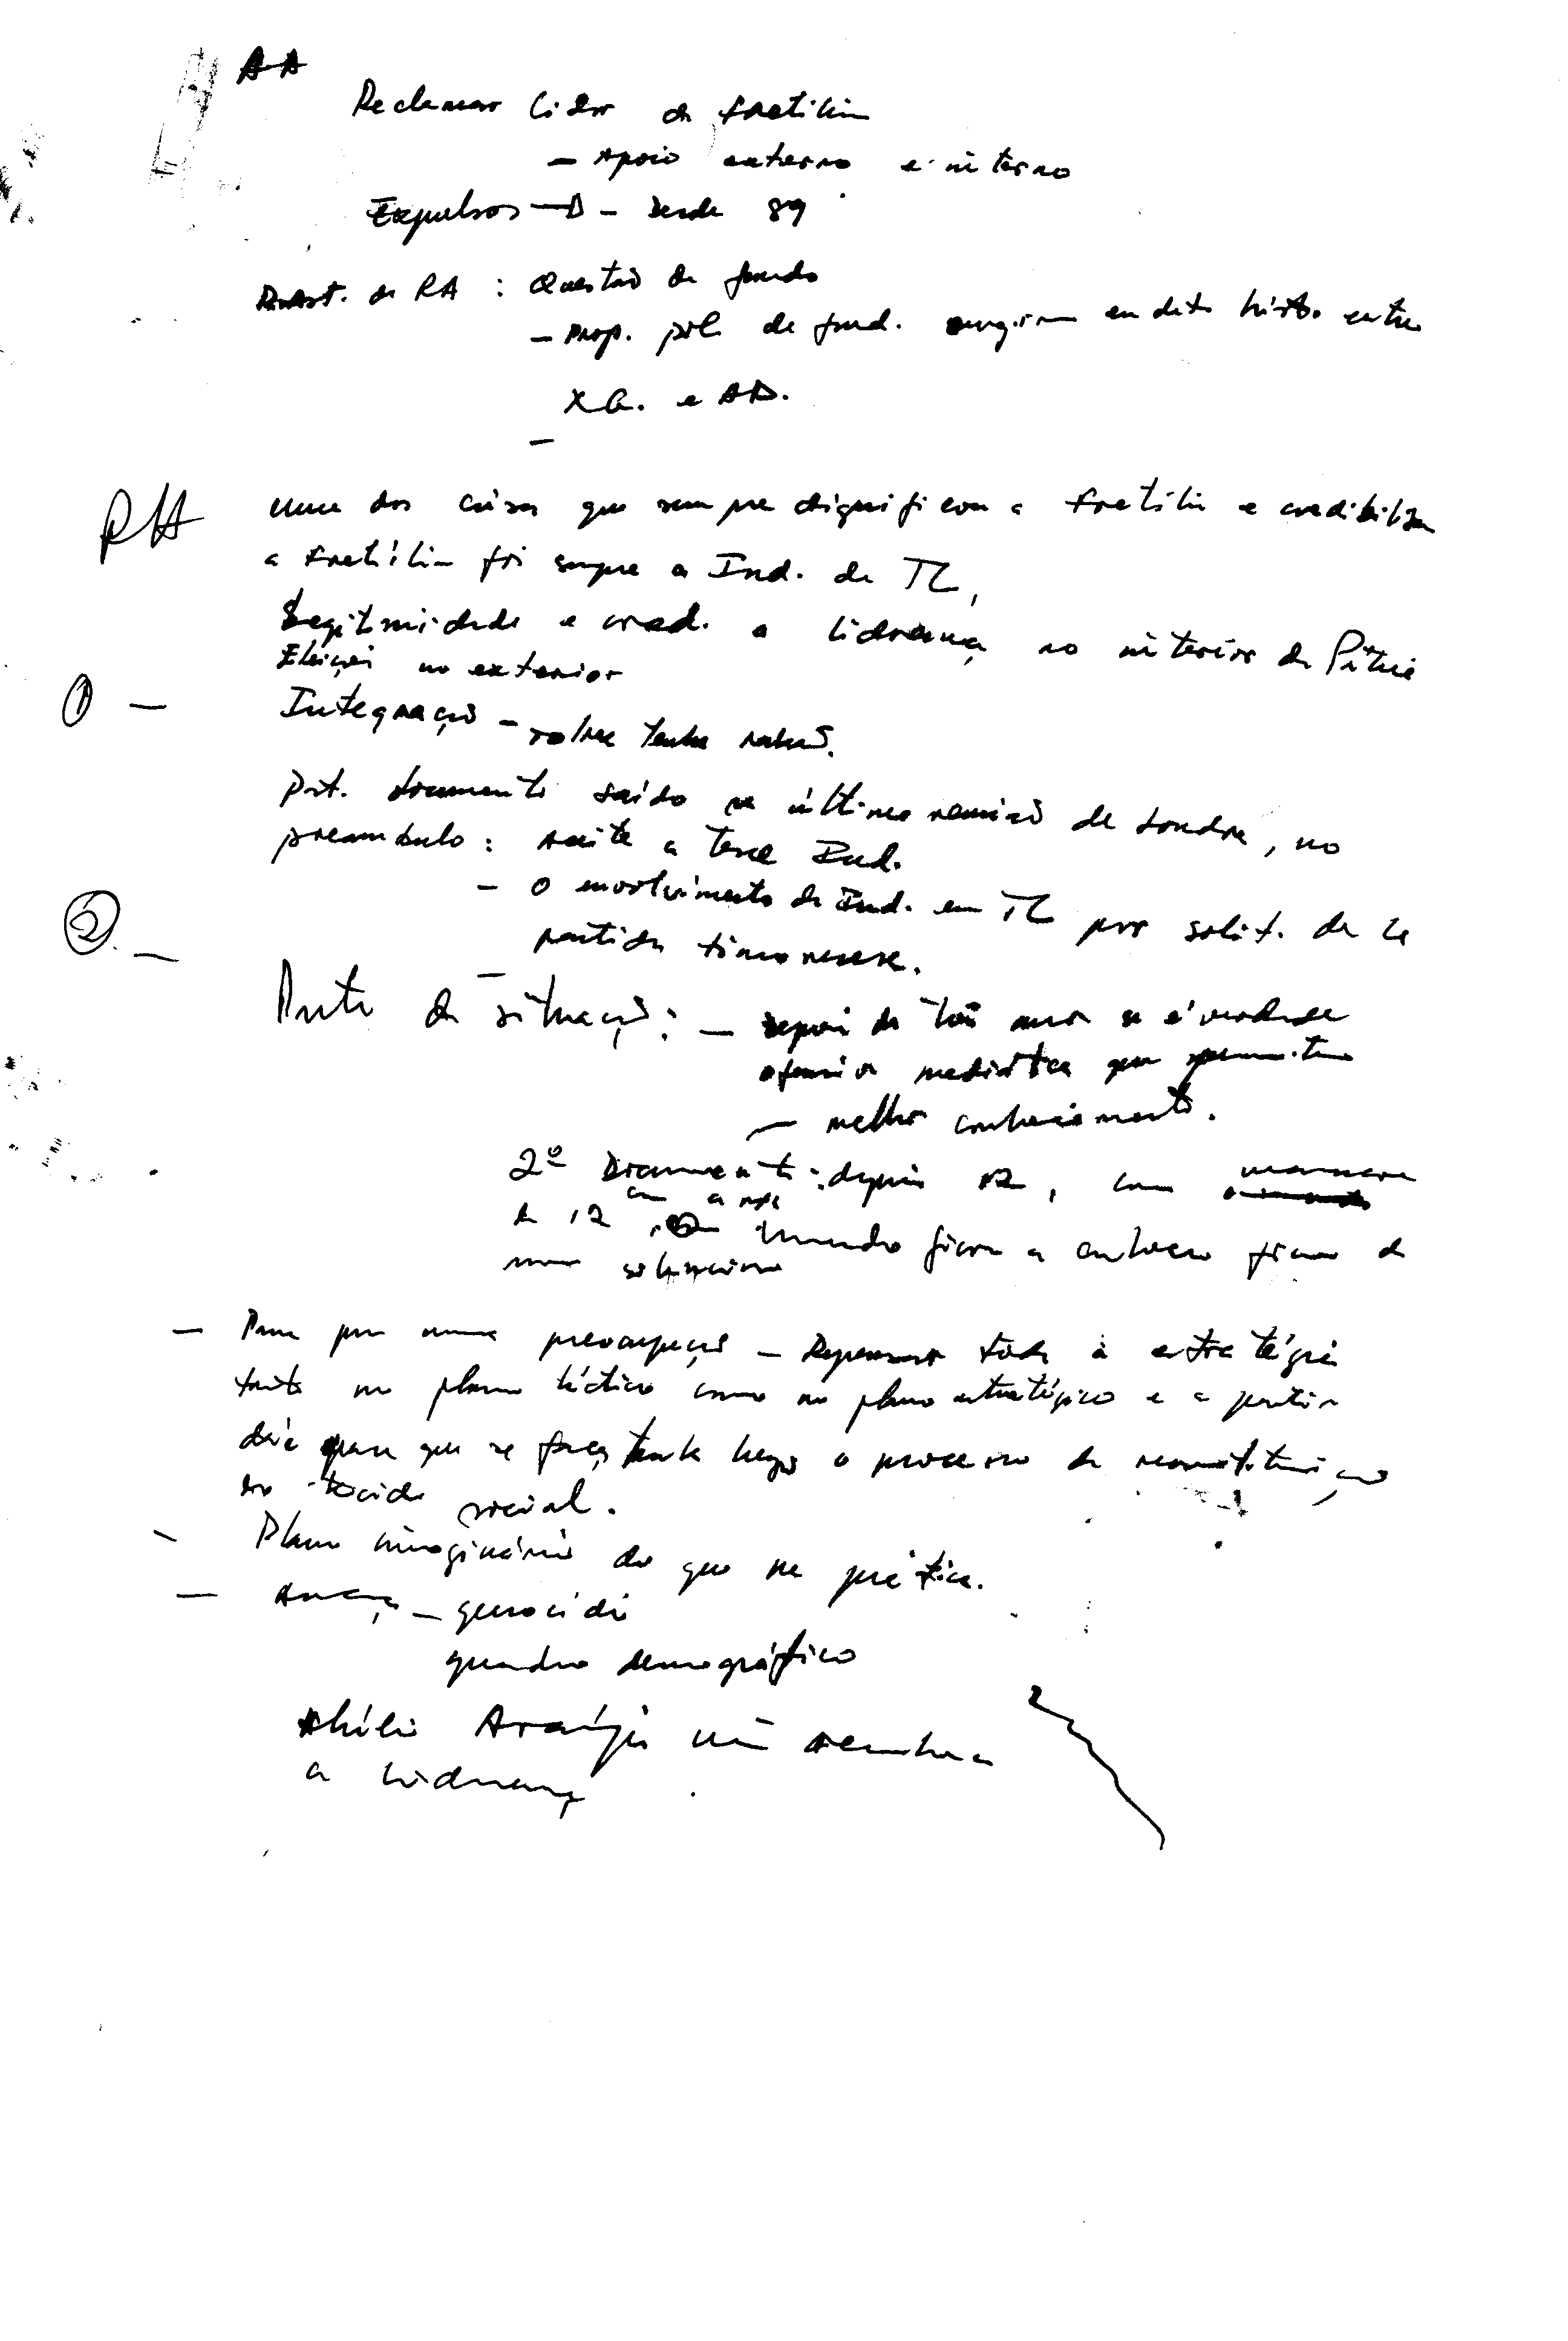 AA
Reclamar lider da Fretilin
- Apoio externo e interno
Expulsos → - Desde 89
de RA : Questão de fundo
- Prop. pol. de fund. surgiram em dete. hist. entre
X.G. e AD.
-
RH uma das coisas que sempre dignificou a Fretilin e credibiliza
a Fretilin foi sempre a Ind. de TL,
Legitimidade e cred. a liderança no interior da Pátria
Eleição no exterior
① - Integração - talvez tenha razão.
documento saído na última reunião de Londres, no
preambulo : aceite a tese Ind.
- O envolvimento da Ind. em TL por solit. de
② - partidos timorenses.
- Ponto da situação : - depois de anos se é verdade
ofensiva mediática que permitiu
- melhor conhecimento.
2º Documento : depois 12, com massacre
de 12 o mundo ficou a conhecer
uma
- Para uma preocupação - Repensar toda a estratégia
tanto no plano táctico como no plano estratégico e a partir
daí para que se faça tenha lugar o processo de reconstituição
do tecido social.
- Plano imaginário do que na prática.
- - genocidio
quadro demográfico
Abílio Araújo não
a liderança